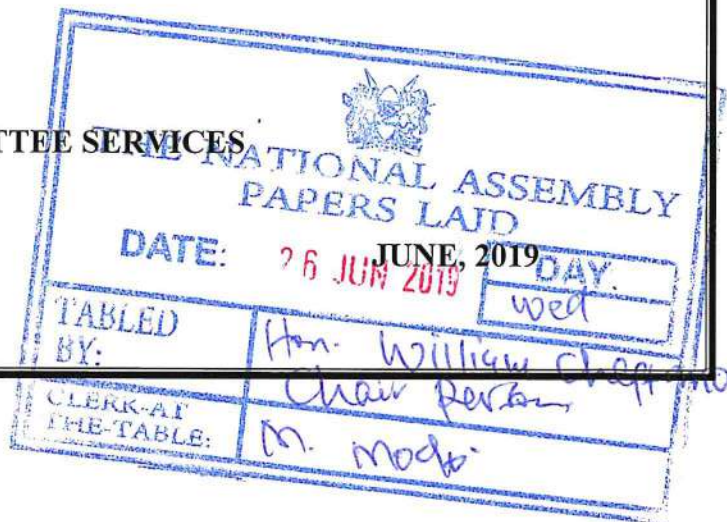 TTEE SERVICES
THE NATIONAL ASSEMBLY
PAPERS LAID
DATE: 26 JUN 2019
JUNE, 2019
DAY.
wed
TABLED BY:
Hon. William
Chair person
CLERK-AT THE-TABLE:
M.